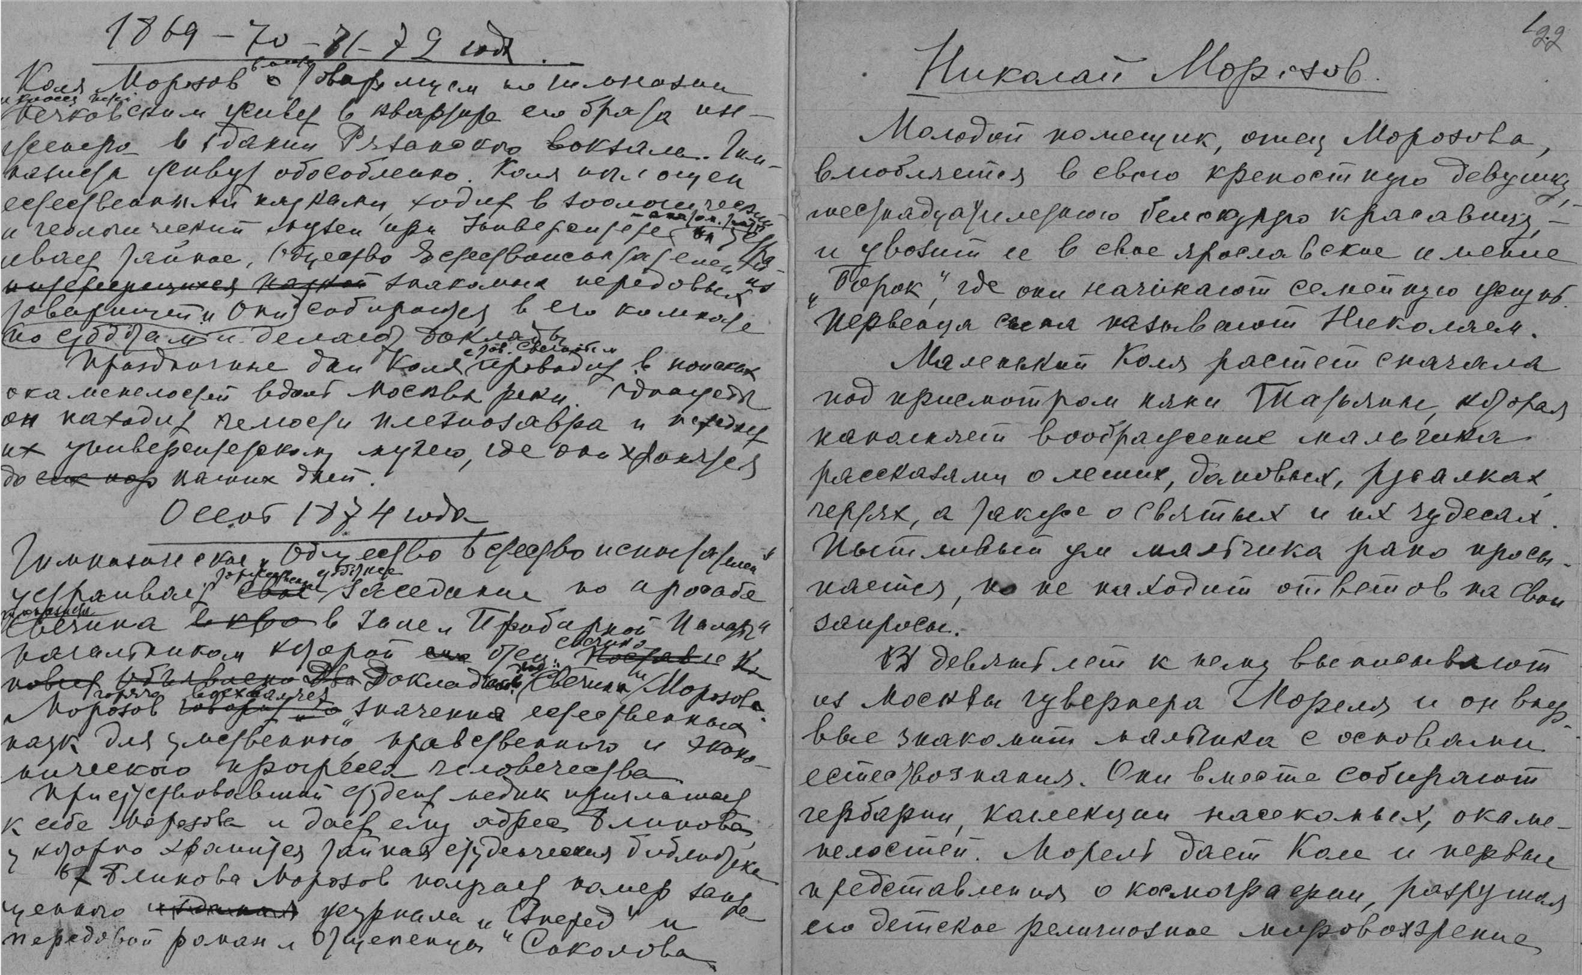 1869 – 70 – 71 – 72 года
Коля Морозов с товарищем по гимназии
Печковским живет в квартире его брата ин-
женера в здании Рязанского вокзала. Гим-
назисты живут обособленно. Коля поглощен
естественными науками, ходит в зоологический
и геологический музеи при Университете
тайное „Общество Естествоиспытателей
знакомых передовых
товарищей. Они собираются в его комнате
по субботам и делают доклады
Праздничные дни Коля проводит в поисках
окаменелостей вдоль Москвы реки. Однажды
он находит челюсти плезиозавра и передает
их университетскому музею, где они хранятся
до наших дней.
Осень 1874 года
Гимназическое „Общество Естествоиспытателей"
устраивает заседание по просьбе
Свечина в зале „Пробирной Палаты"
начальником которой отец Свечина
Доклады Свечин и Морозова.
Морозов значении естественных
наук для умственного, нравственного и эконо-
мического прогресса человечества
Присутствовавший студент медик приглашает
к себе Морозова и дает ему адрес Блинова,
у которого хранится тайная студенческая библиотека
От Блинова Морозов получает номер запре
щенного журнала „Вперед" и
передовой роман „Отщепенцы" Соколова
122
Николай Морозов.
Молодой помещик, отец Морозова,
влюбляется в свою крепостную девушку,
шестнадцатилетнюю белокурую красавицу,
и увозит ее в свое ярославское имение
„Борок", где они начинают семейную жизнь.
Первенца сына называют Николаем.
Маленький Коля растет сначала
под присмотром няни Татьяны, которая
наполняет воображение мальчика
рассказами о леших, домовых, русалках,
чертях, а также о святых и их чудесах.
Пытливый ум мальчика рано просы-
пается, но не находит ответов на свои
запросы.
В девять лет к нему выписывают
из Москвы гувернера Мореля и он впер-
вые знакомит мальчика с основами
естествознания. Они вместе собирают
гербарии, коллекции насекомых, окаме-
нелостей. Морель дает Коле и первые
представления о космографии, разрушая
его детское религиозное мировоззрение